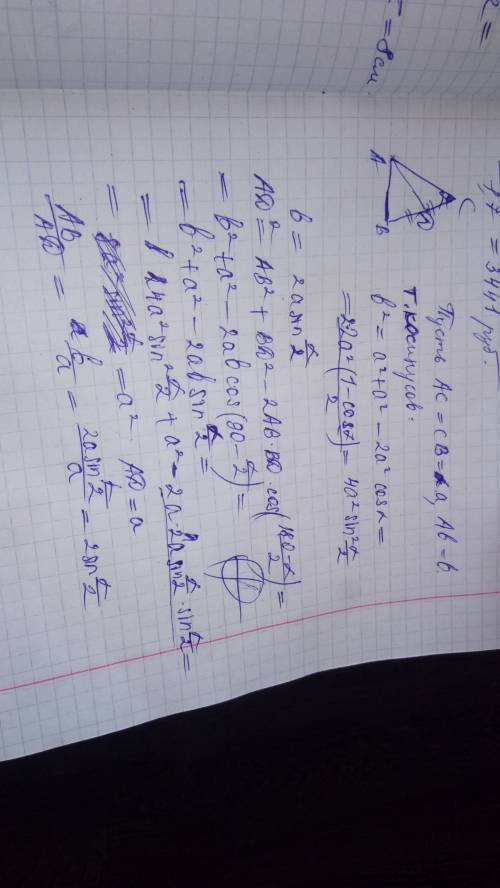 = 8 см
= 3441 руб.
C
D
A
B
Пусть AC = CB = a, AB = b.
т. косинусов:
b² = a² + a² − 2a² cosα =
= 2·2a² (1 − cosα)/2 = 4a² sin² α/2
b = 2a sin α/2
AD² = AB² + BD² − 2AB·BD·cos((180−α)/2) =
= b² + a² − 2ab cos(90 − α/2) =
= b² + a² − 2ab sin α/2 =
= 4a² sin² α/2 + a² − 2a·2a sin α/2 · sin α/2 =
= = a². AD = a
AB/AD = b/a = 2a sin α/2 / a = 2 sin α/2